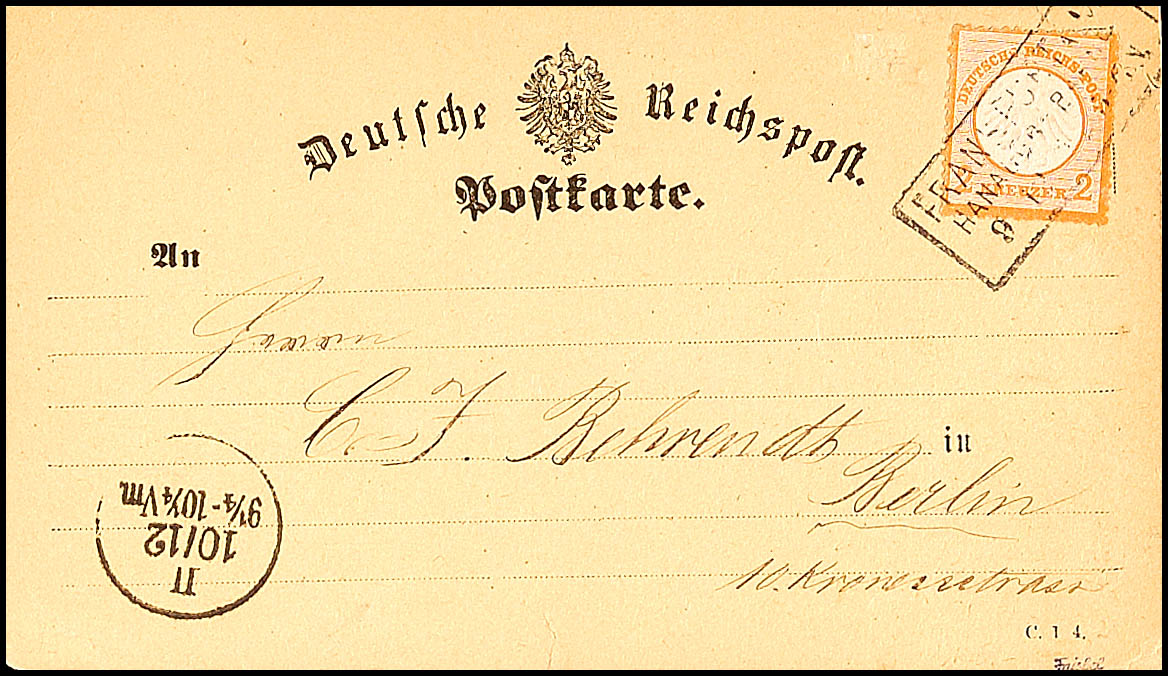 Deutsche Reichspost.
Postkarte.
DEUTSCHE REICHS-POST
2
FRAN
HANA
8
An
Herrn
C. F. Behrendt in
Berlin
10. Kronenstrasse
9¼-10¼ Vm
10/12
II
C. 1 4.